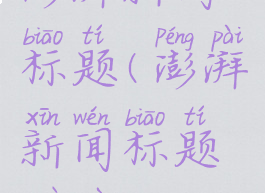 biāo tí Péng pài
标题(澎湃
xīn wén biāo tí
新闻标题